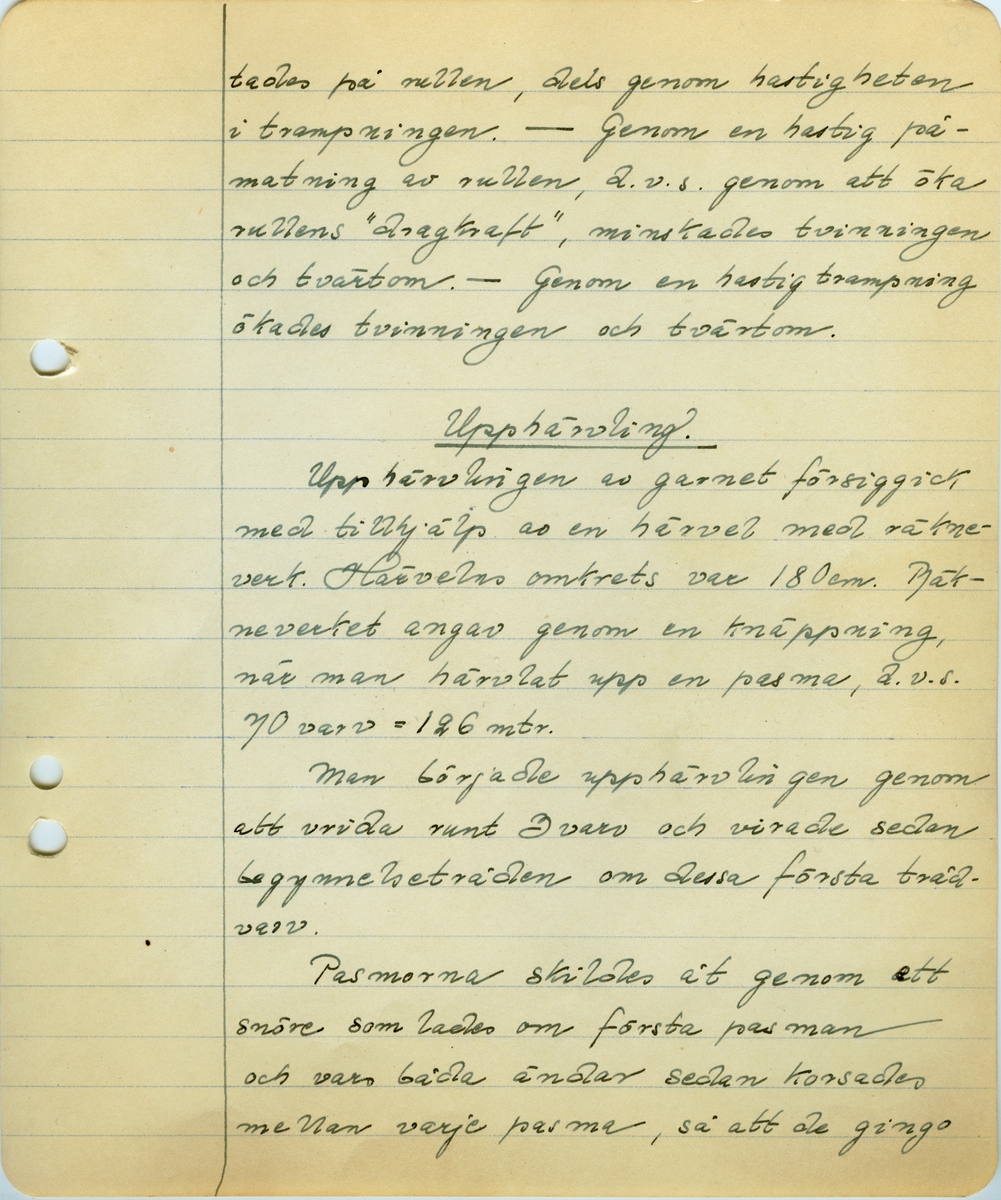 tades på rullen, dels genom hastigheten
i trampningen. — Genom en hastig på-
matning av rullen, d.v.s. genom att öka
rullens "dragkraft", minskades tvinningen
och tvärtom. — Genom en hastig trampning
ökades tvinningen och tvärtom.
Upphärvling.
Upphärvlingen av garnet försiggick
med tillhjälp av en härvel med räkne-
verk. Härvelns omkrets var 180 cm. Räk-
neverket angav genom en knäppning,
när man härvlat upp en pasma, d.v.s.
70 varv = 126 mtr.
Man började upphärvlingen genom
att vrida runt 3 varv och virade sedan
begynnelsetråden om dessa första tråd-
varv.
Pasmorna skildes åt genom ett
snöre som lades om första pasman
och vars båda ändar sedan korsades
mellan varje pasma, så att de gingo